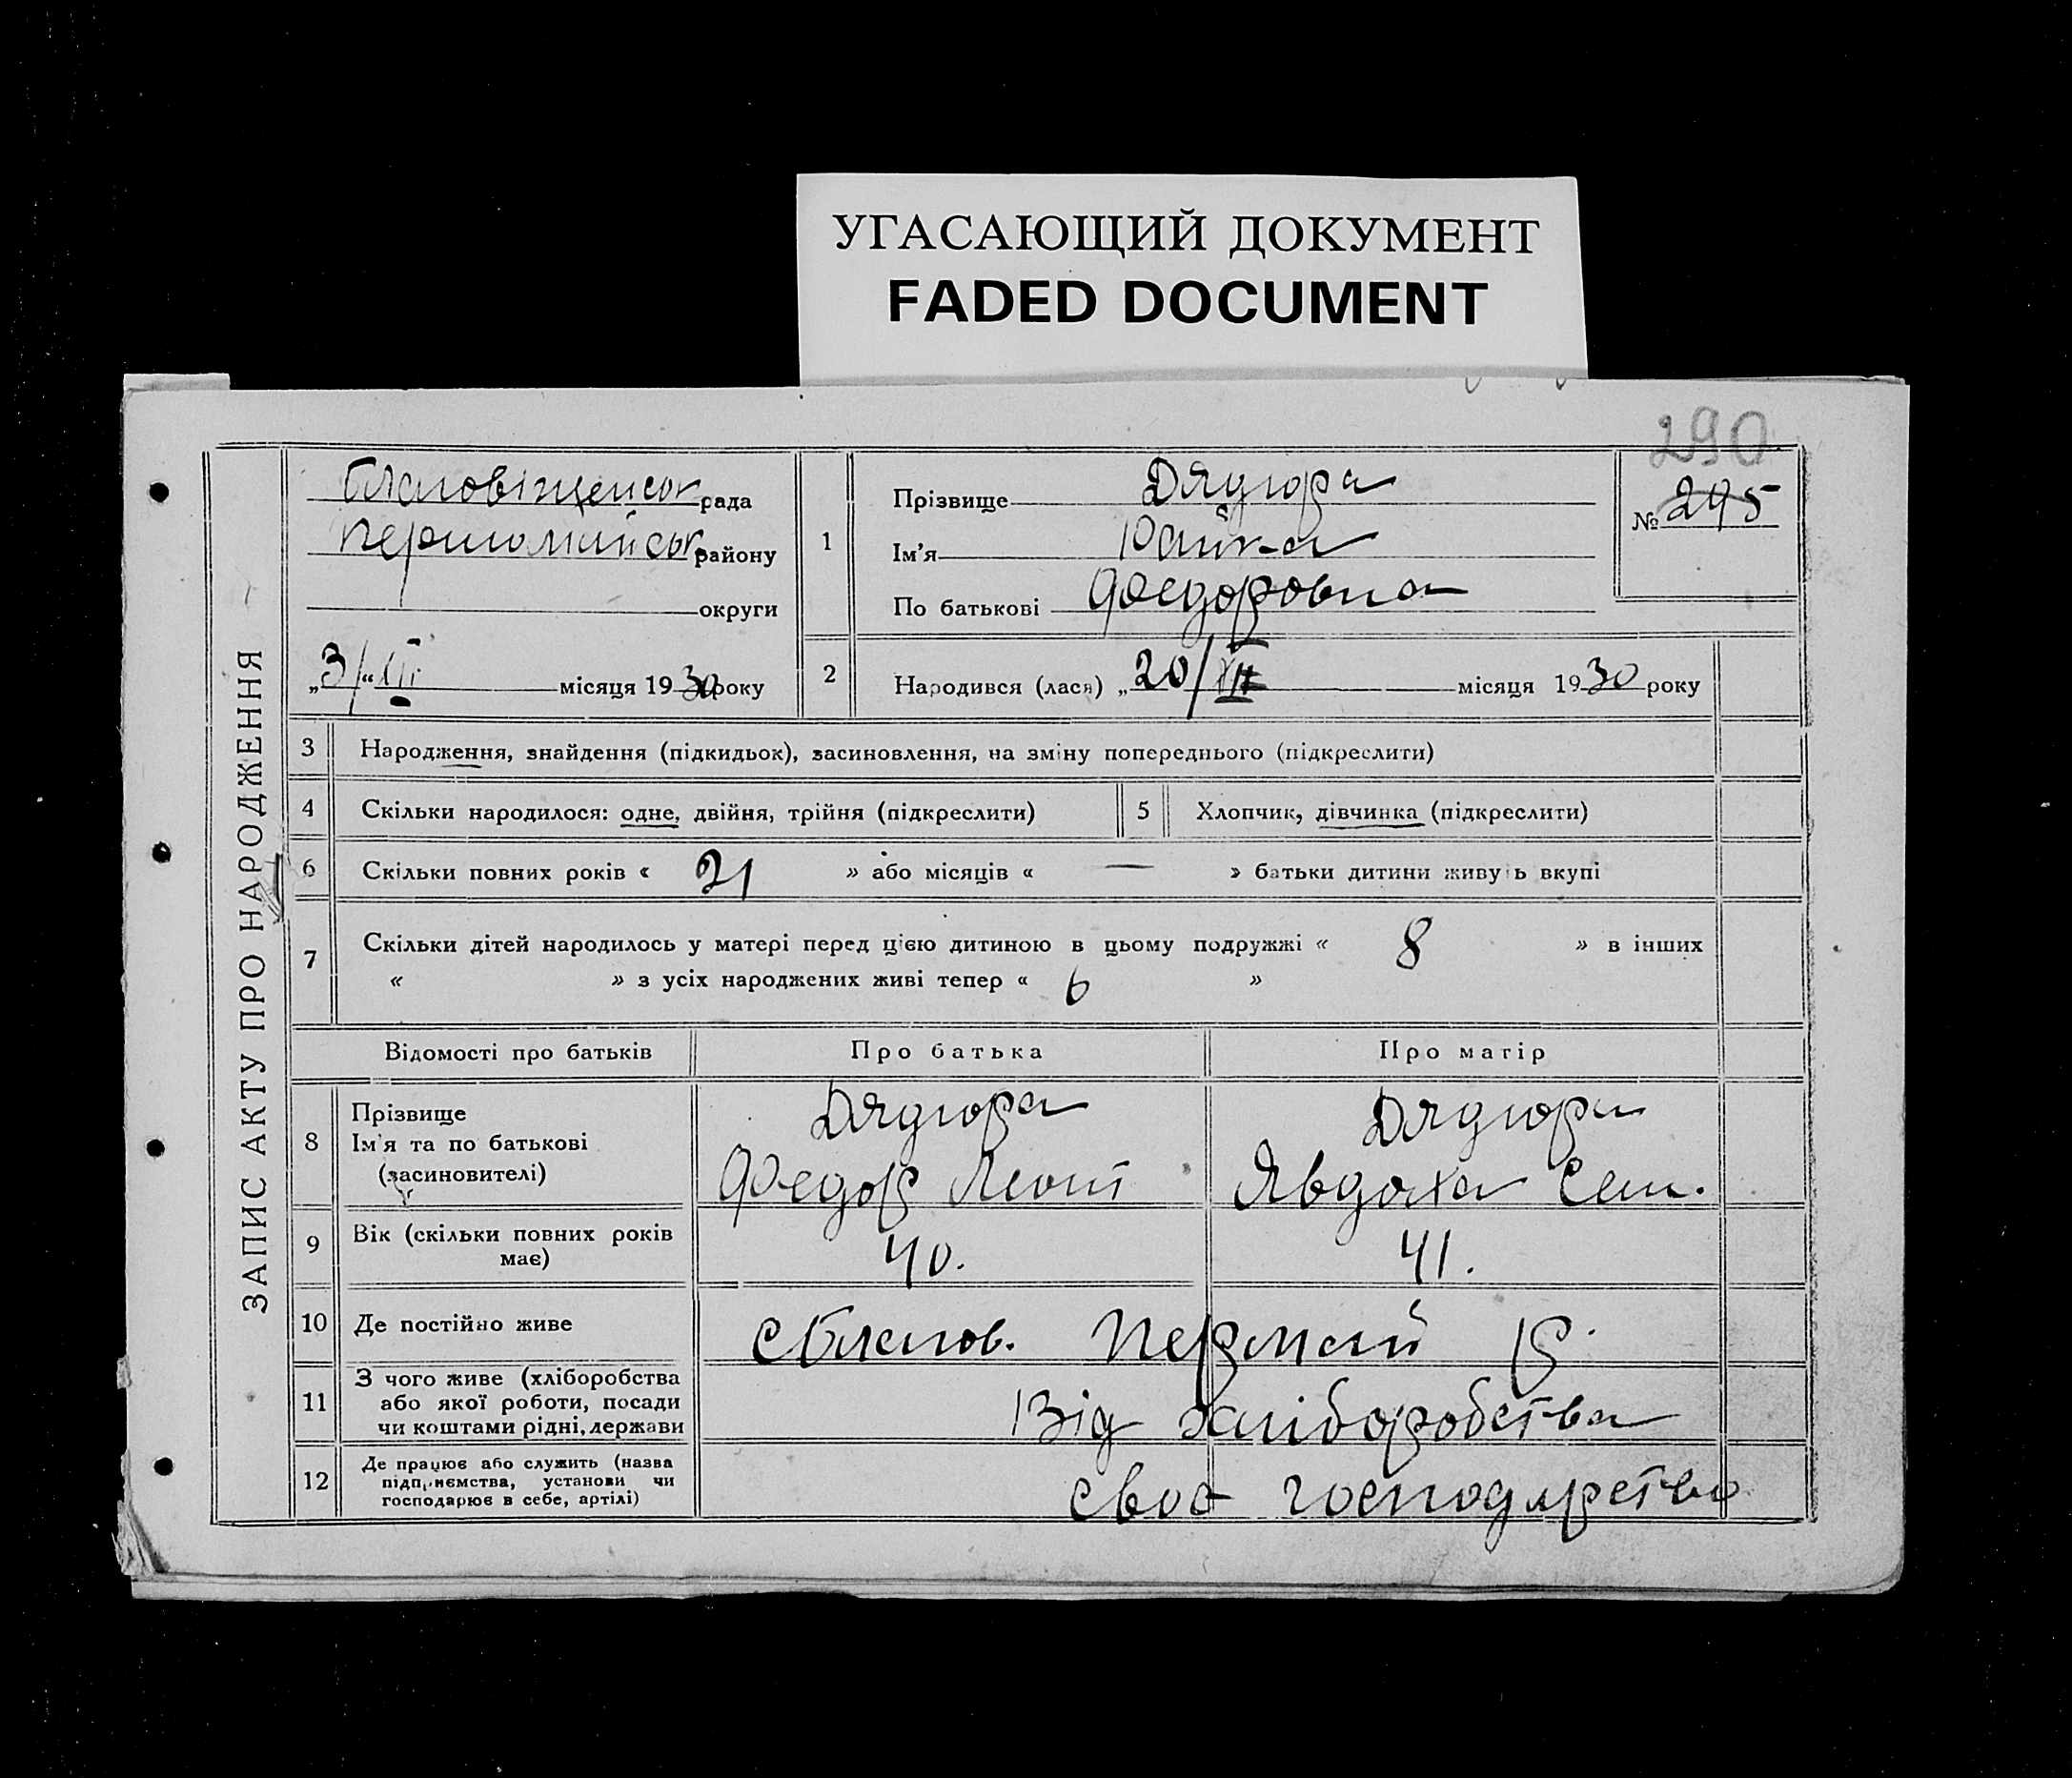 УГАСАЮЩИЙ ДОКУМЕНТ
FADED DOCUMENT
290
ЗАПИС АКТУ ПРО НАРОДЖЕННЯ
Благовіщенськ рада
Першомайськ району
округи
„3/“ місяця 1930 року
1
Прізвище Дядюра
Ім'я
По батькові Федоровна
№ 295
2 Народився (лася) „20/XII місяця 1930 року
3 Народження, знайдення (підкидьок), засиновлення, на зміну попереднього (підкреслити)
4 Скільки народилося: одне, двійня, трійня (підкреслити)
5 Хлопчик, дівчинка (підкреслити)
6 Скільки повних років « 21 » або місяців « — » батьки дитини живуть вкупі
7 Скільки дітей народилось у матері перед цією дитиною в цьому подружжі « 8 » в інших
« » з усіх народжених живі тепер « 6 »
Відомості про батьків Про батька Про матір
8 Прізвище Ім'я та по батькові (засиновителі)
Дядюра Федор Леонт
Дядюра Явдоха Сем.
9 Вік (скільки повних років має) 40. 41.
10 Де постійно живе с Благов. Пермай р.
11 З чого живе (хліборобства або якої роботи, посади чи коштами рідні, держави Від хліборобства
12 Де працює або служить (назва підприємства, установи чи господарює в себе, артілі) своє господарство